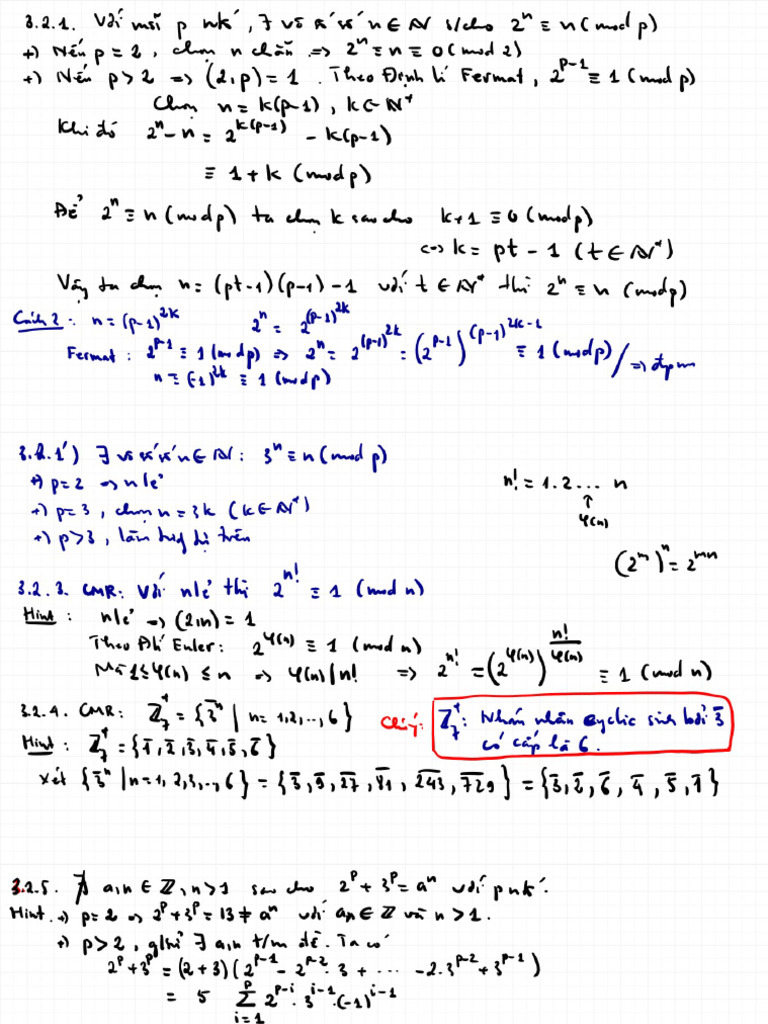 3.2.1. Với mỗi p ntố, ∃ vô số số n ∈ ℕ s/cho 2^n ≡ n (mod p)
+) Nếu p = 2, chọn n chẵn ⇒ 2^n ≡ n ≡ 0 (mod 2)
+) Nếu p > 2 ⇒ (2,p) = 1. Theo Định lí Fermat, 2^{p-1} ≡ 1 (mod p)
Chọn n = k(p-1), k ∈ ℕ*
Khi đó 2^n - n = 2^{k(p-1)} - k(p-1)
≡ 1 + k (mod p)
Để 2^n ≡ n (mod p) ta chọn k sao cho k+1 ≡ 0 (mod p)
⇔ k = pt - 1 (t ∈ ℕ*)
Vậy ta chọn n = (pt-1)(p-1) - 1 với t ∈ ℕ* thì 2^n ≡ n (mod p)
Cách 2: n = (p-1)^{2k} 2^n = 2^{(p-1)^{2k}}
Fermat: 2^{p-1} ≡ 1 (mod p) ⇒ 2^n = 2^{(p-1)^{2k}} = (2^{p-1})^{(p-1)^{2k-1}} ≡ 1 (mod p) / ⇒ đpcm
n ≡ (-1)^{2k} ≡ 1 (mod p)
3.2.1') ∃ vô số số n ∈ ℕ: 3^n ≡ n (mod p)
+) p = 2 ⇒ n lẻ
+) p = 3, chọn n = 3k (k ∈ ℕ*)
+) p > 3, làm tương tự trên
n! = 1.2... n
↑
φ(n)
(2^m)^n = 2^{mn}
3.2.3. CMR: Với n lẻ thì 2^{n!} ≡ 1 (mod n)
Hint: n lẻ ⇒ (2,n) = 1
Theo Đlí Euler: 2^{φ(n)} ≡ 1 (mod n)
Mà 1 ≤ φ(n) ≤ n ⇒ φ(n) | n! ⇒ 2^{n!} = (2^{φ(n)})^{n!/φ(n)} ≡ 1 (mod n)
3.2.4. CMR: ℤ₇* = {3̄^n | n = 1,2,..,6}
Chú ý: ℤ₇*: Nhóm nhân cyclic sinh bởi 3̄
có cấp là 6.
Hint: ℤ₇* = {1̄, 2̄, 3̄, 4̄, 5̄, 6̄}
Xét {3̄^n | n = 1,2,3,..,6} = {3̄, 9̄, 2̄7̄, 8̄1̄, 2̄4̄3̄, 7̄2̄9̄} = {3̄, 2̄, 6̄, 4̄, 5̄, 1̄}
3.2.5. ∄ a,n ∈ ℤ, n > 1 sao cho 2^p + 3^p = a^n với p ntố.
Hint. +) p = 2 ⇒ 2^p + 3^p = 13 ≠ a^n với a,n ∈ ℤ và n > 1.
+) p > 2, g/thử ∃ a,n t/m đề. Ta có
2^p + 3^p = (2+3)(2^{p-1} - 2^{p-2}.3 + ... - 2.3^{p-2} + 3^{p-1})
= 5 ∑_{i=1}^{p} 2^{p-i}.3^{i-1}.(-1)^{i-1}